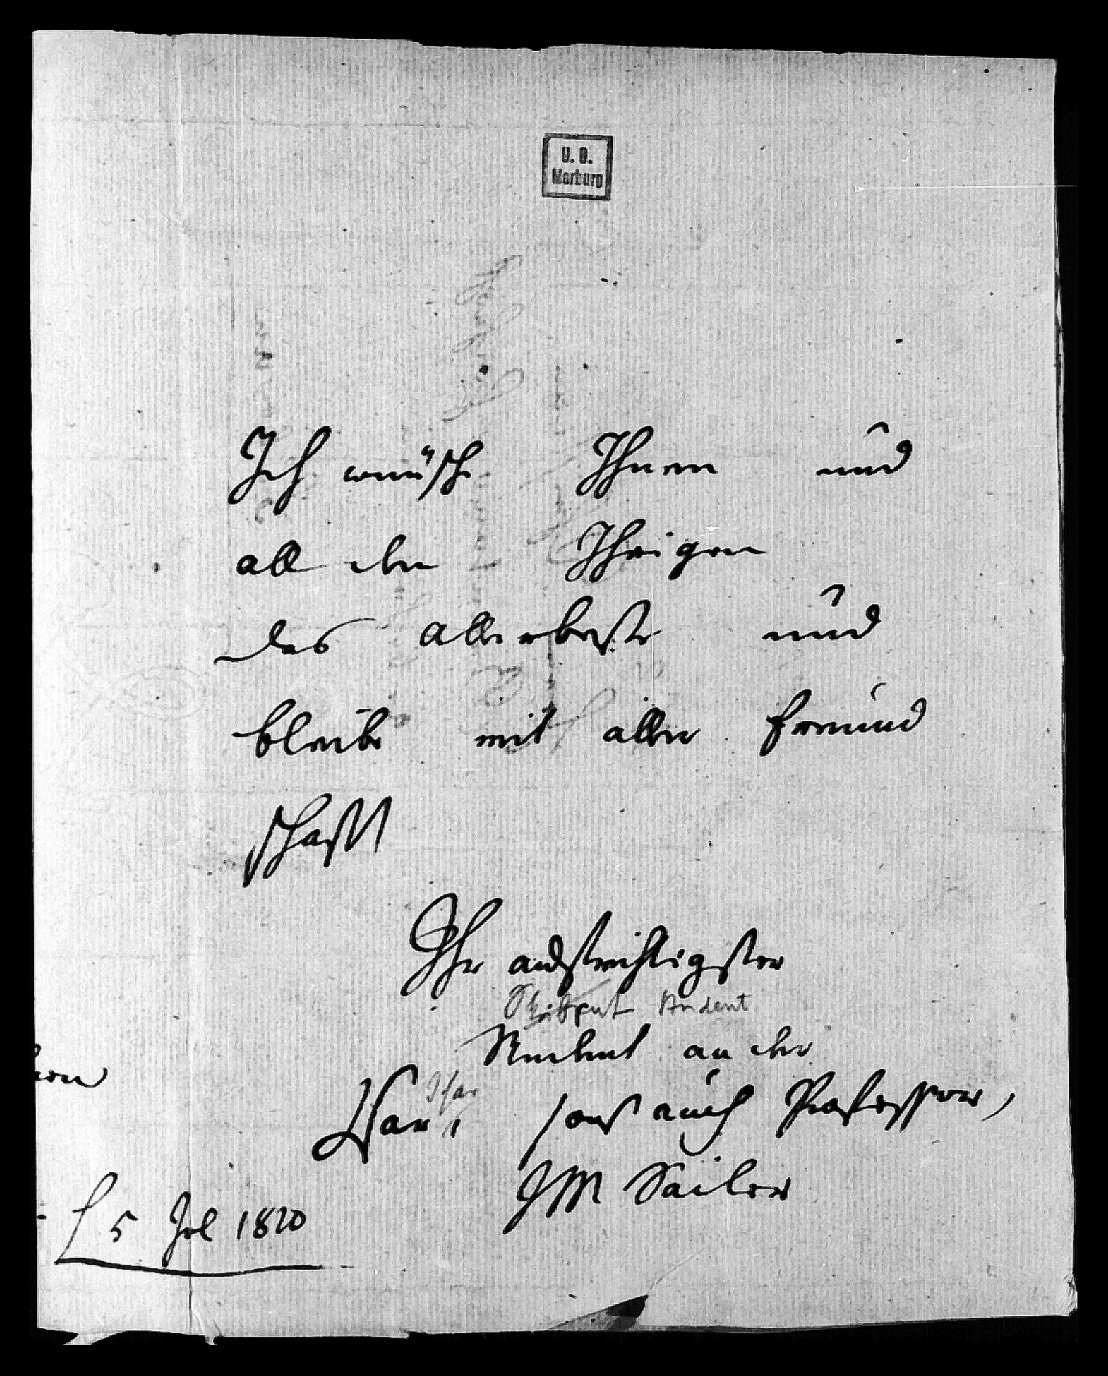 U. B.
Marburg
Ich wünsche Ihnen und
all den Ihrigen
das allerbeste und
bleibe mit aller Freund
schafft
Ihr aufrichtigster
Student
Student an der
Isar
Isar, sonst auch Professor,
JM Sailer
5 Jul 1820